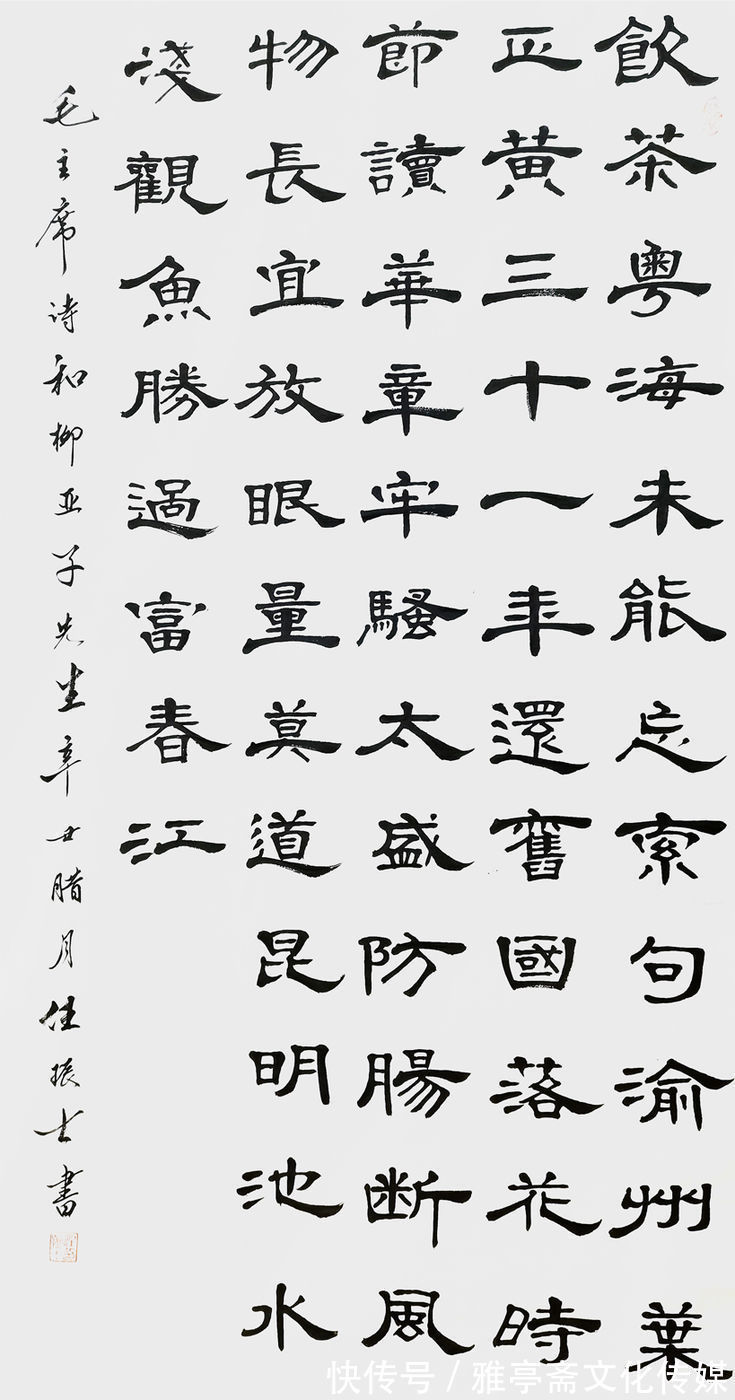 飲茶粵海未能忘索句渝州葉
正黄三十一年還舊國落花時
節讀華章牢騷太盛防腸斷風
物長宜放眼量莫道昆明池水
淺觀魚勝過富春江
毛主席诗和柳亚子先生辛丑腊月任振士書
快传号 / 雅亭斋文化传媒